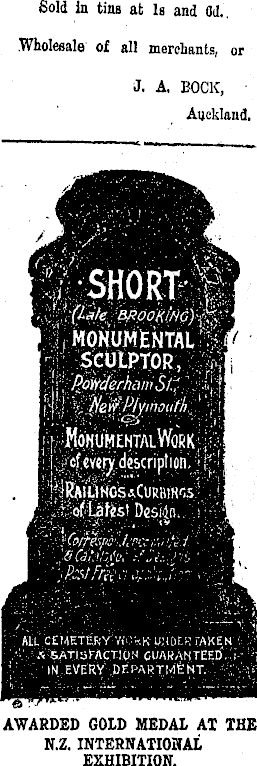 Sold in tins at 1s and 6d.
Wholesale of all merchants, or
J. A. BOCK,
Auckland.
SHORT
(Late BROOKING)
MONUMENTAL
SCULPTOR,
Powderham St.,
New Plymouth
MONUMENTAL WORK
of every description.
RAILINGS & CURBINGS
of Latest Design.
& Catalogue of
Post Free
ALL CEMETERY WORK UNDERTAKEN
& SATISFACTION GUARANTEED
IN EVERY DEPARTMENT.
AWARDED GOLD MEDAL AT THE
N.Z. INTERNATIONAL
EXHIBITION.